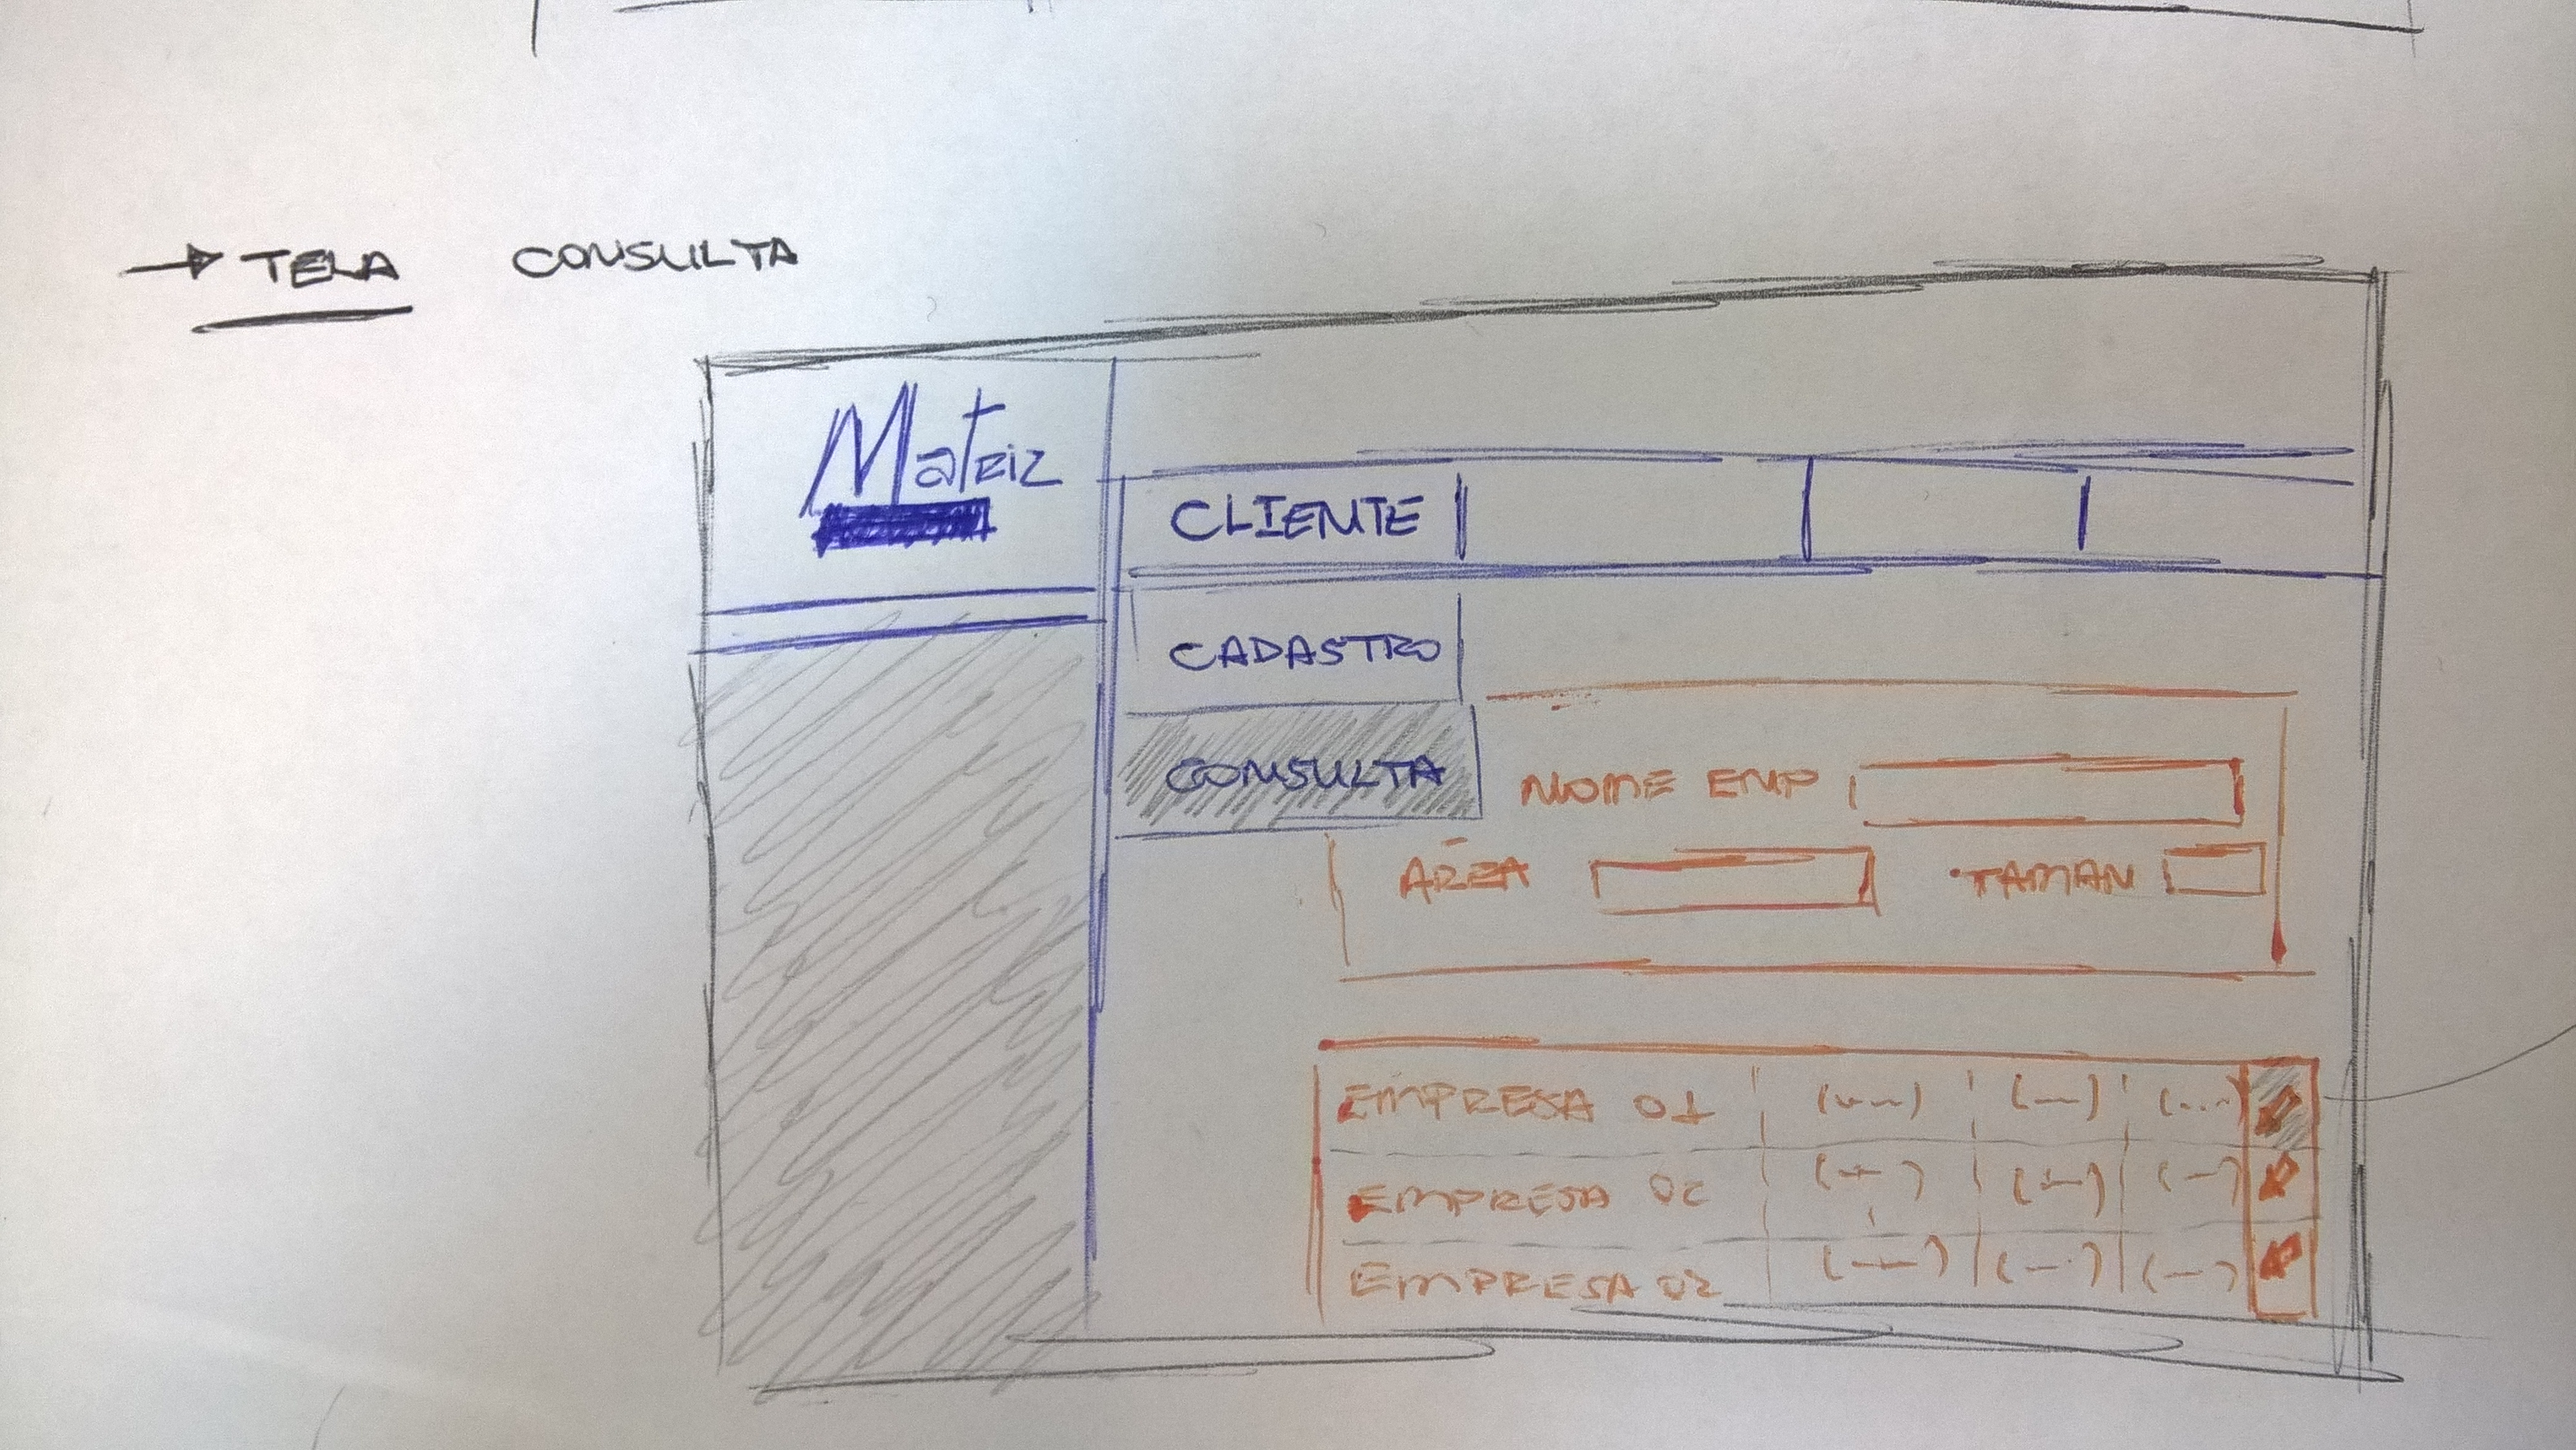 → TELA CONSULTA
Matriz
CLIENTE
CADASTRO
CONSULTA
NOME EMP
ÁREA
TAMAN
EMPRESA 01 (---) (---) (...)
EMPRESA 02 (---) (---) (---)
EMPRESA 02 (---) (---) (---)